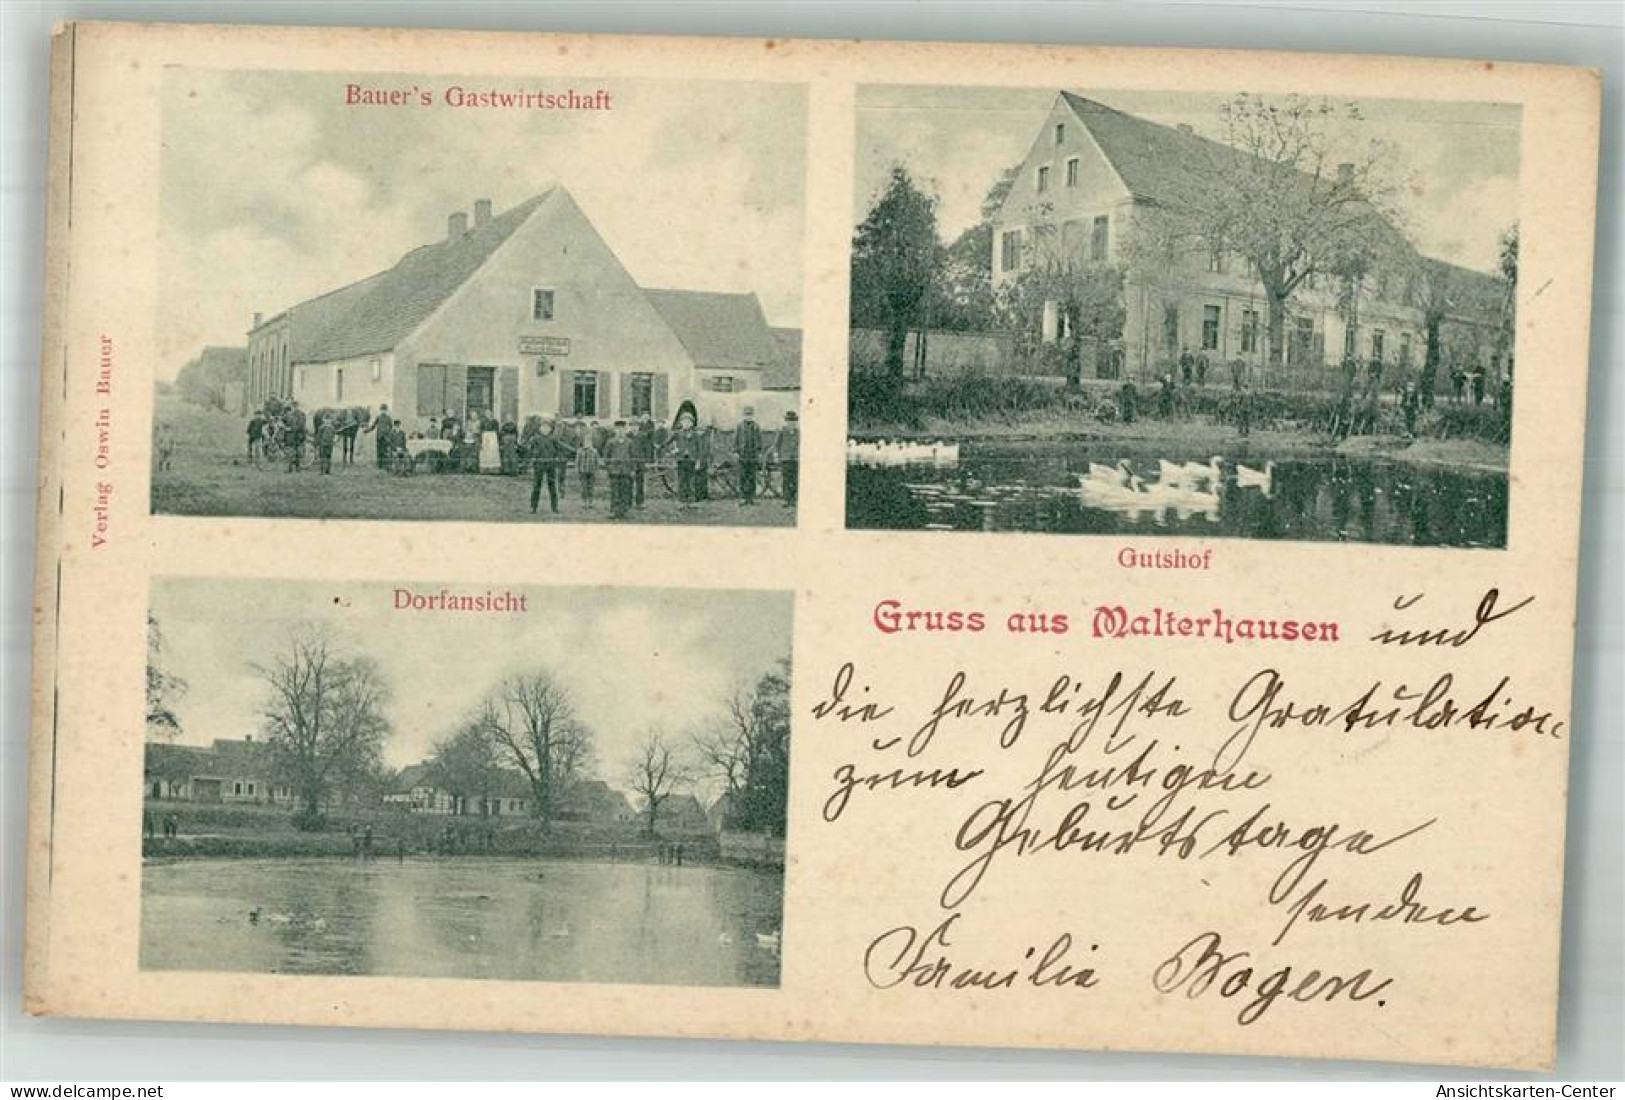 Bauer's Gastwirtschaft
Verlag Oswin Bauer
Gutshof
Dorfansicht
Gruss aus Malterhausen und
die herzlichste Gratulation
zum heutigen
Geburtstage
senden
Familie Bogen.
www.delcampe.net
Ansichtskarten-Center